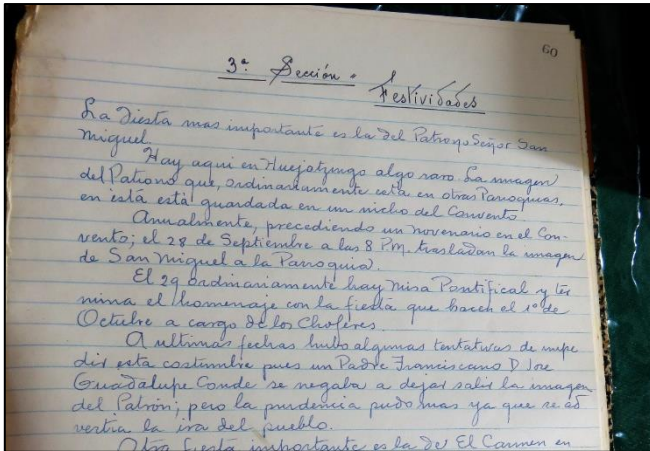 60
3ª Sección.
Festividades
La Fiesta mas importante es la del Patrono Señor San
Miguel.
Hay aqui en Huejotzingo algo raro. La imagen
del Patrono que, ordinariamente esta en otras Parroquias,
en está está guardada en un nicho del Convento.
Anualmente, precediendo un novenario en el Con-
vento; el 28 de Septiembre a las 8 P.M. trasladan la imagen
de San Miguel a la Parroquia.
El 29 ordinariamente hay Misa Pontifical y ter
mina el homenaje con la fiesta que hacen el 1º de
Octubre a cargo de los Choferes.
A ultimas fechas hubo algunas tentativas de impe
dir esta costumbre pues un Padre Franciscano D. Jose
Guadalupe Conde se negaba a dejar salir la imagen
del Patrón; pero la prudencia pudo mas ya que se ad
vertia la ira del pueblo.
Otra fiesta importante es la de El Carmen en